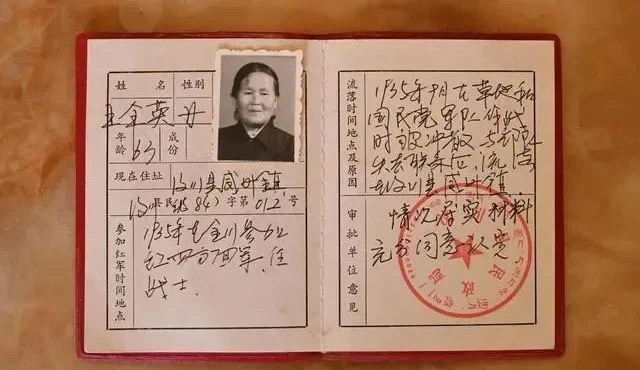 姓名
性别
王全英 女
年龄
63
成份
现在住址
汶川县威州镇
汶川县民(84)字第012号
参加红军时间地点
1935年在金川参加
红四方面军,任
战士.
流落时间地点及原因
1935年9月在草地和
国民党军队作战
时被冲散,与部队
失去联系后,流落
在汶川县威州镇.
审批单位意见
情况属实 材料
充分 同意认定
民政局